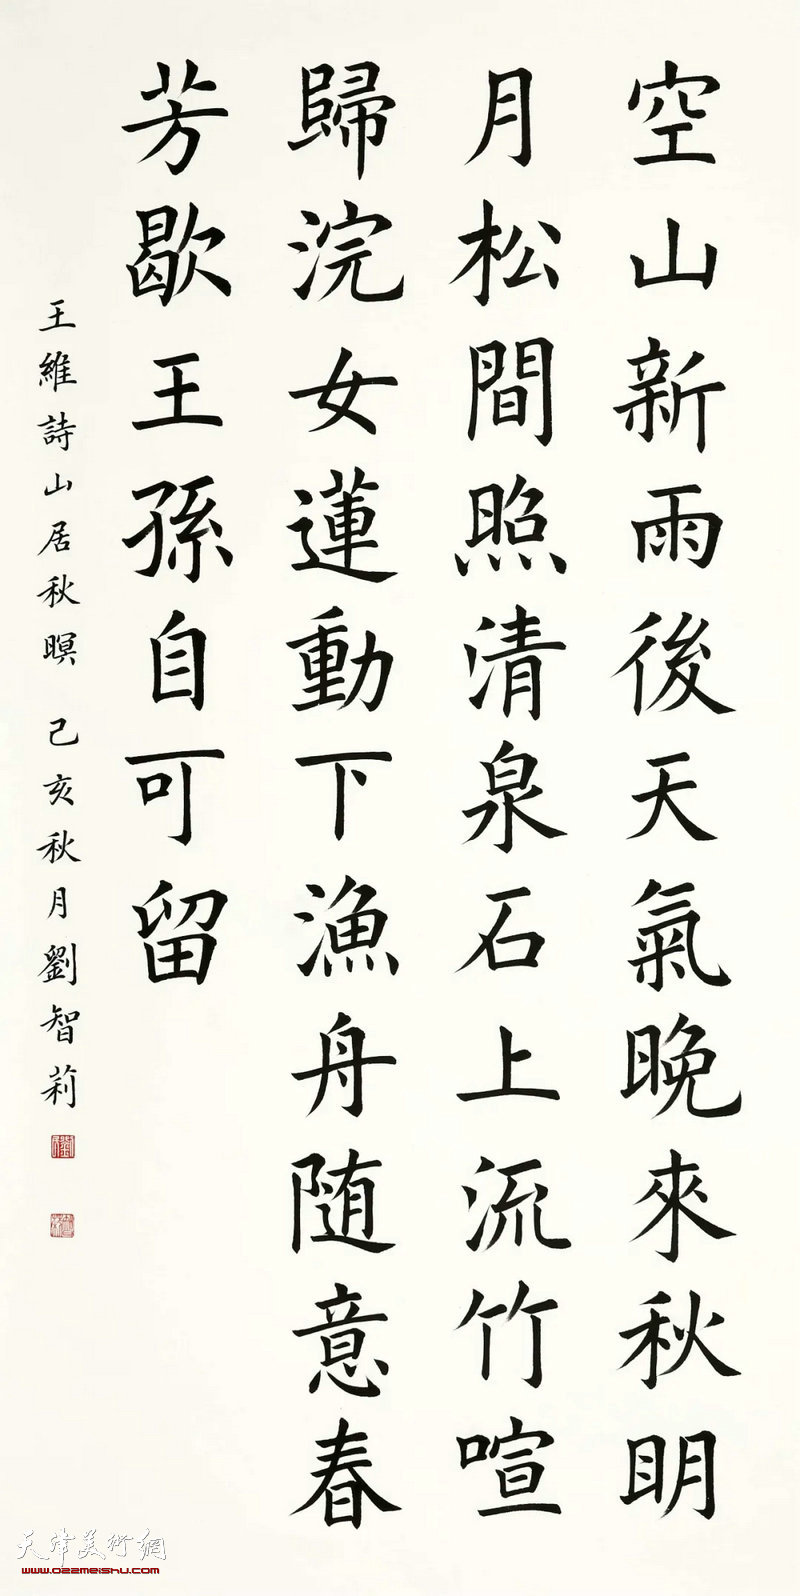 空山新雨後天氣晚來秋明
月松間照清泉石上流竹喧
歸浣女蓮動下漁舟随意春
芳歇王孫自可留
王維詩山居秋暝 己亥秋月劉智莉
天津美術網
www.022meishu.com